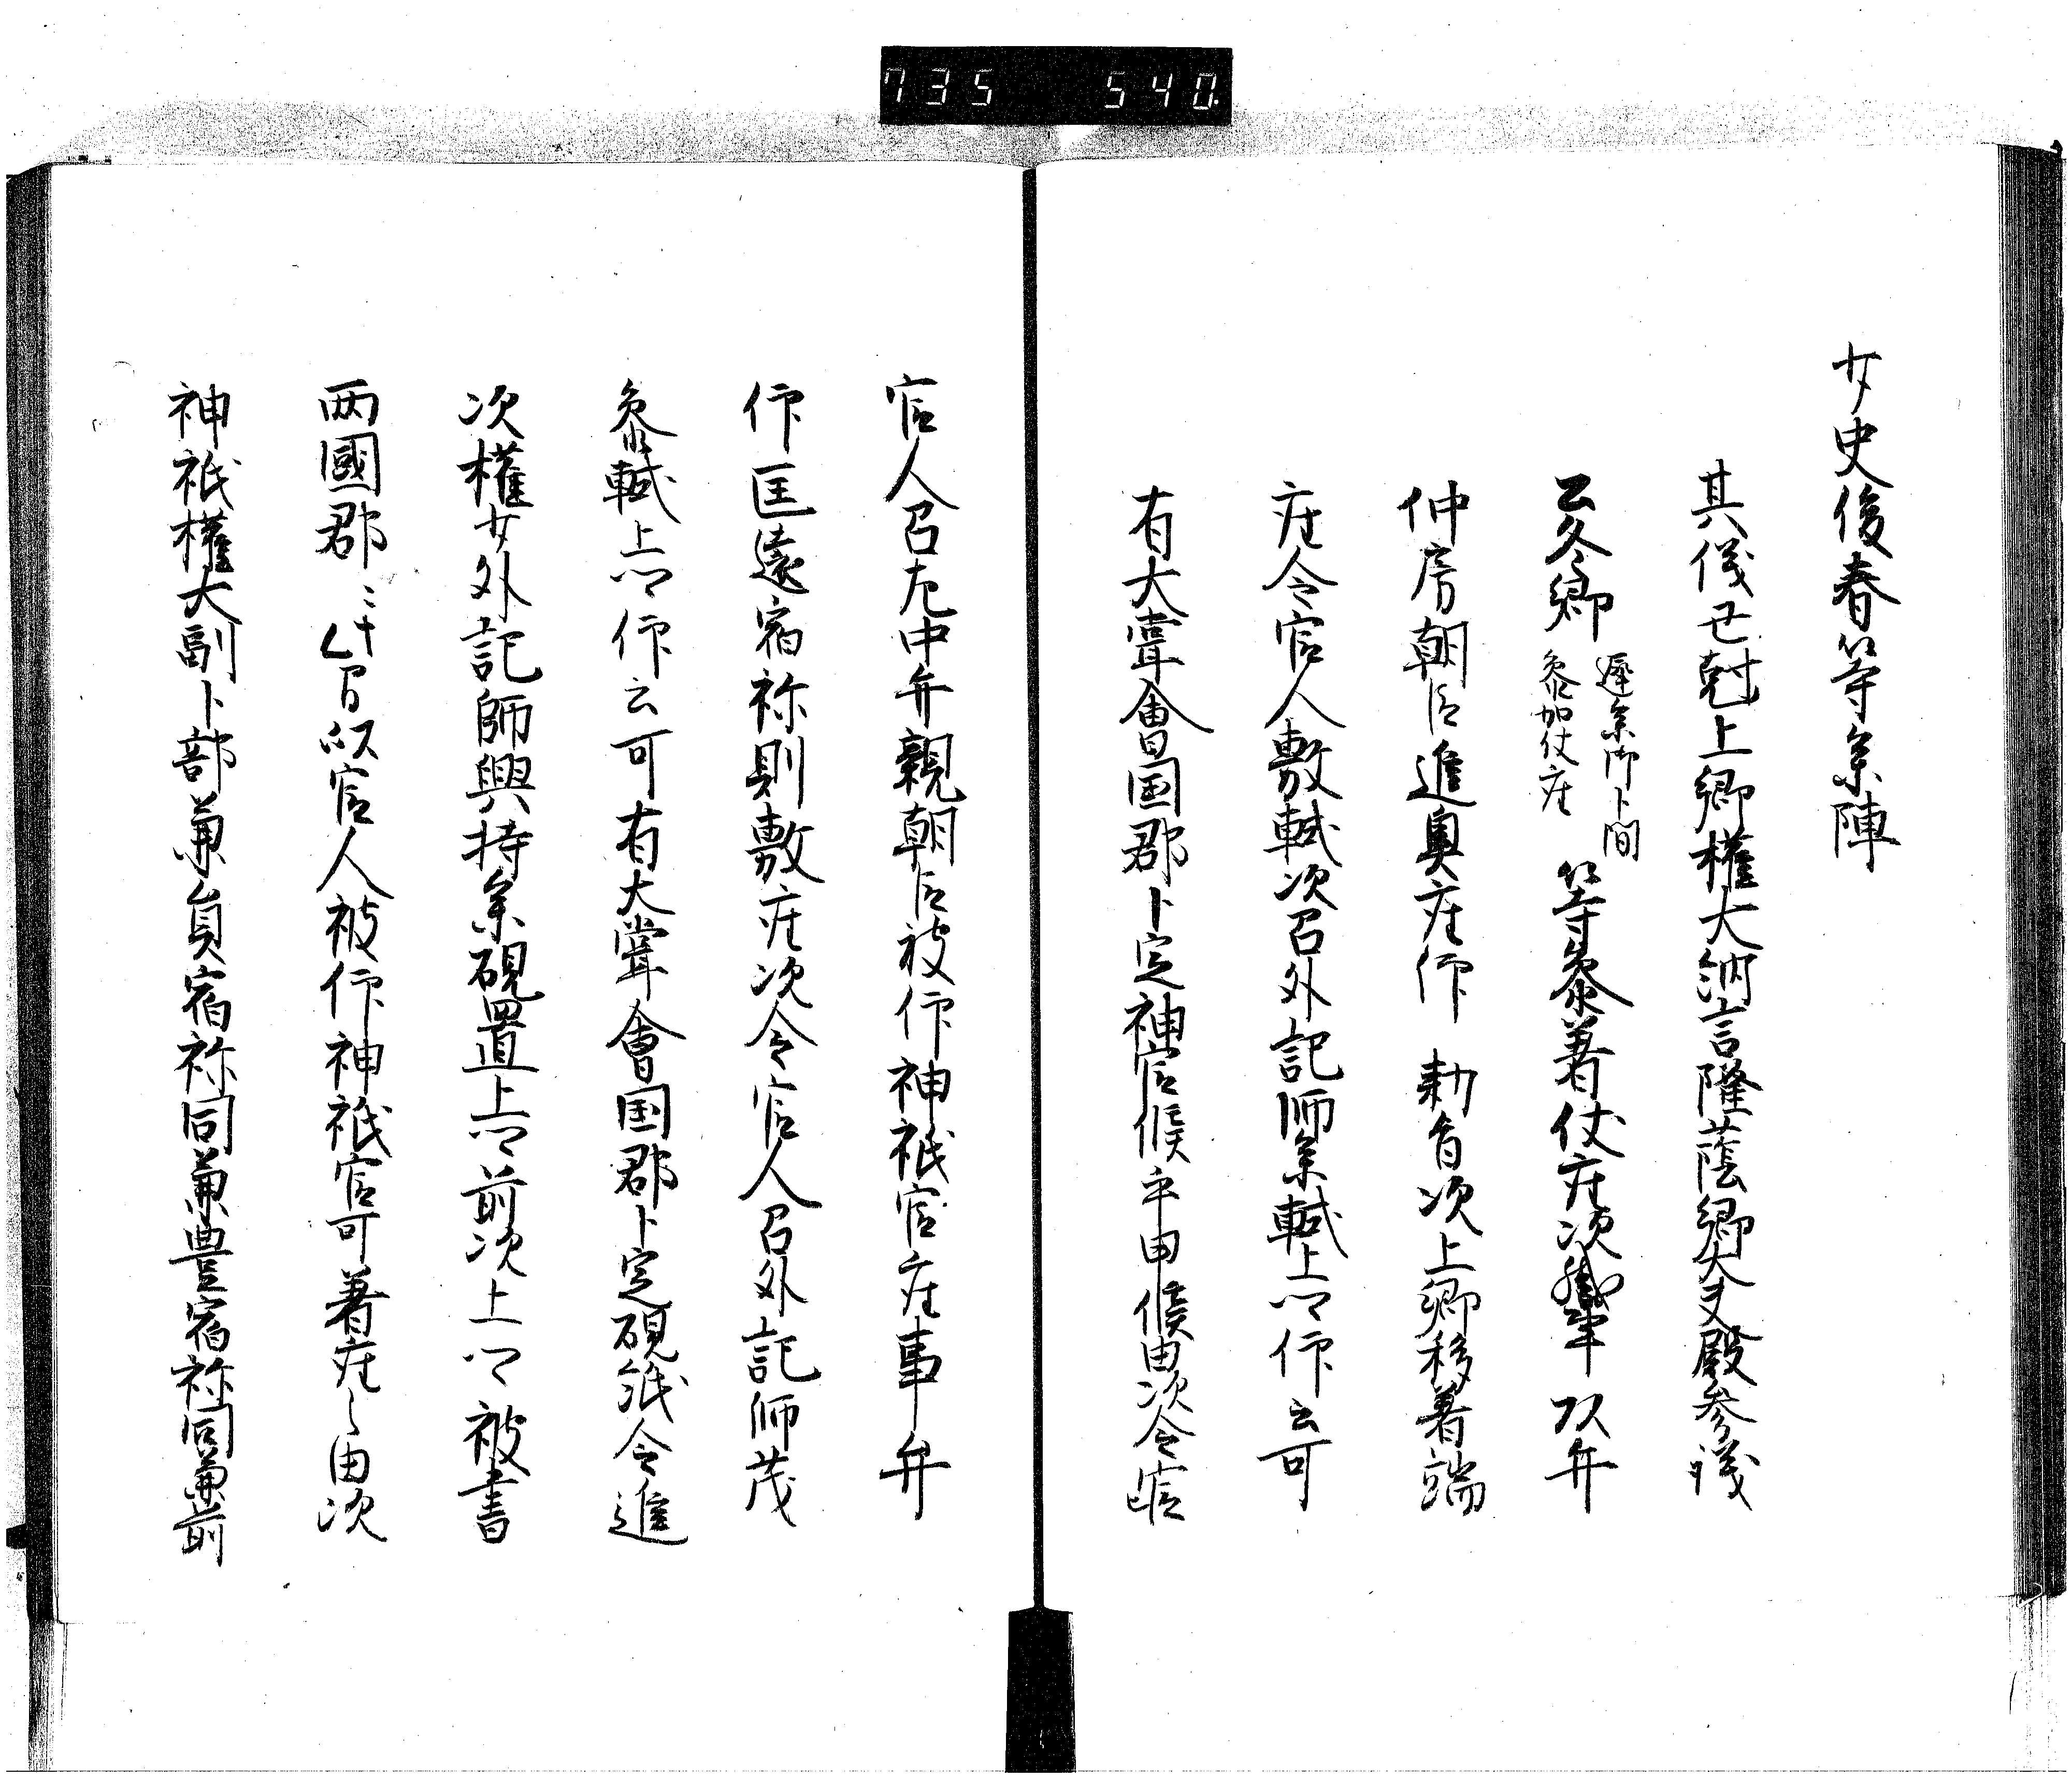 735 540
少史俊春等参陣
其儀丑剋上卿権大納言隆蔭卿大夫殿参議
公冬卿
遅参御卜間
参加仗座
等参着仗座次職事頭弁
仲房朝臣進奥座仰 勅旨次上卿移着端
座令官人敷軾次召外記師参軾上卿仰云可
有大嘗會国郡卜定神官候乎申候由次令官
官人召左中弁親朝臣被仰神祇官座事弁
仰匡遠宿祢則敷座次令官人召外記師茂
参軾上卿仰云可有大嘗會国郡卜定硯紙令進
次權少外記師興持参硯置上卿前次上卿被書
両國郡 以官人被仰神祇官可着座之由次
神祇權大副卜部兼員宿祢同兼豊宿祢同兼前